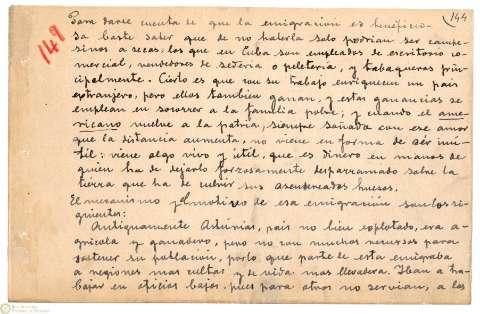 144
149
Para darse cuenta de que la emigración es beneficio-
sa baste saber que de no haberla solo podrían ser campe-
sinos a secas, los que en Cuba son empleados de escritorio co-
mercial, vendedores de sedería o peletería, y tabaqueros prin-
cipalmente. Cierto es que con su trabajo enriquecen un país
extranjero, pero ellos también ganan, y estas ganancias se
emplean en socorrer a la familia pobre; y cuando el ame-
ricano vuelve a la patria, siempre soñada con ese amor
que la distancia aumenta, no viene en forma de ser inú-
til: viene algo vivo y útil, que es dinero en manos de
quien ha de dejarlo forzosamente desparramado sobre la
tierra que ha de cubrir sus asendereados huesos.
El mecanismo y el motivo de esa emigración son los si-
guientes:
Antiguamente Asturias, país no bien explotado, era a-
grícola y ganadero, pero no con muchos recursos para
sostener su población, por lo que parte de esta emigraba
a regiones mas cultas y de vida mas llevadera. Iban a tra-
bajar en oficios bajos, pues para otros no servían, a los